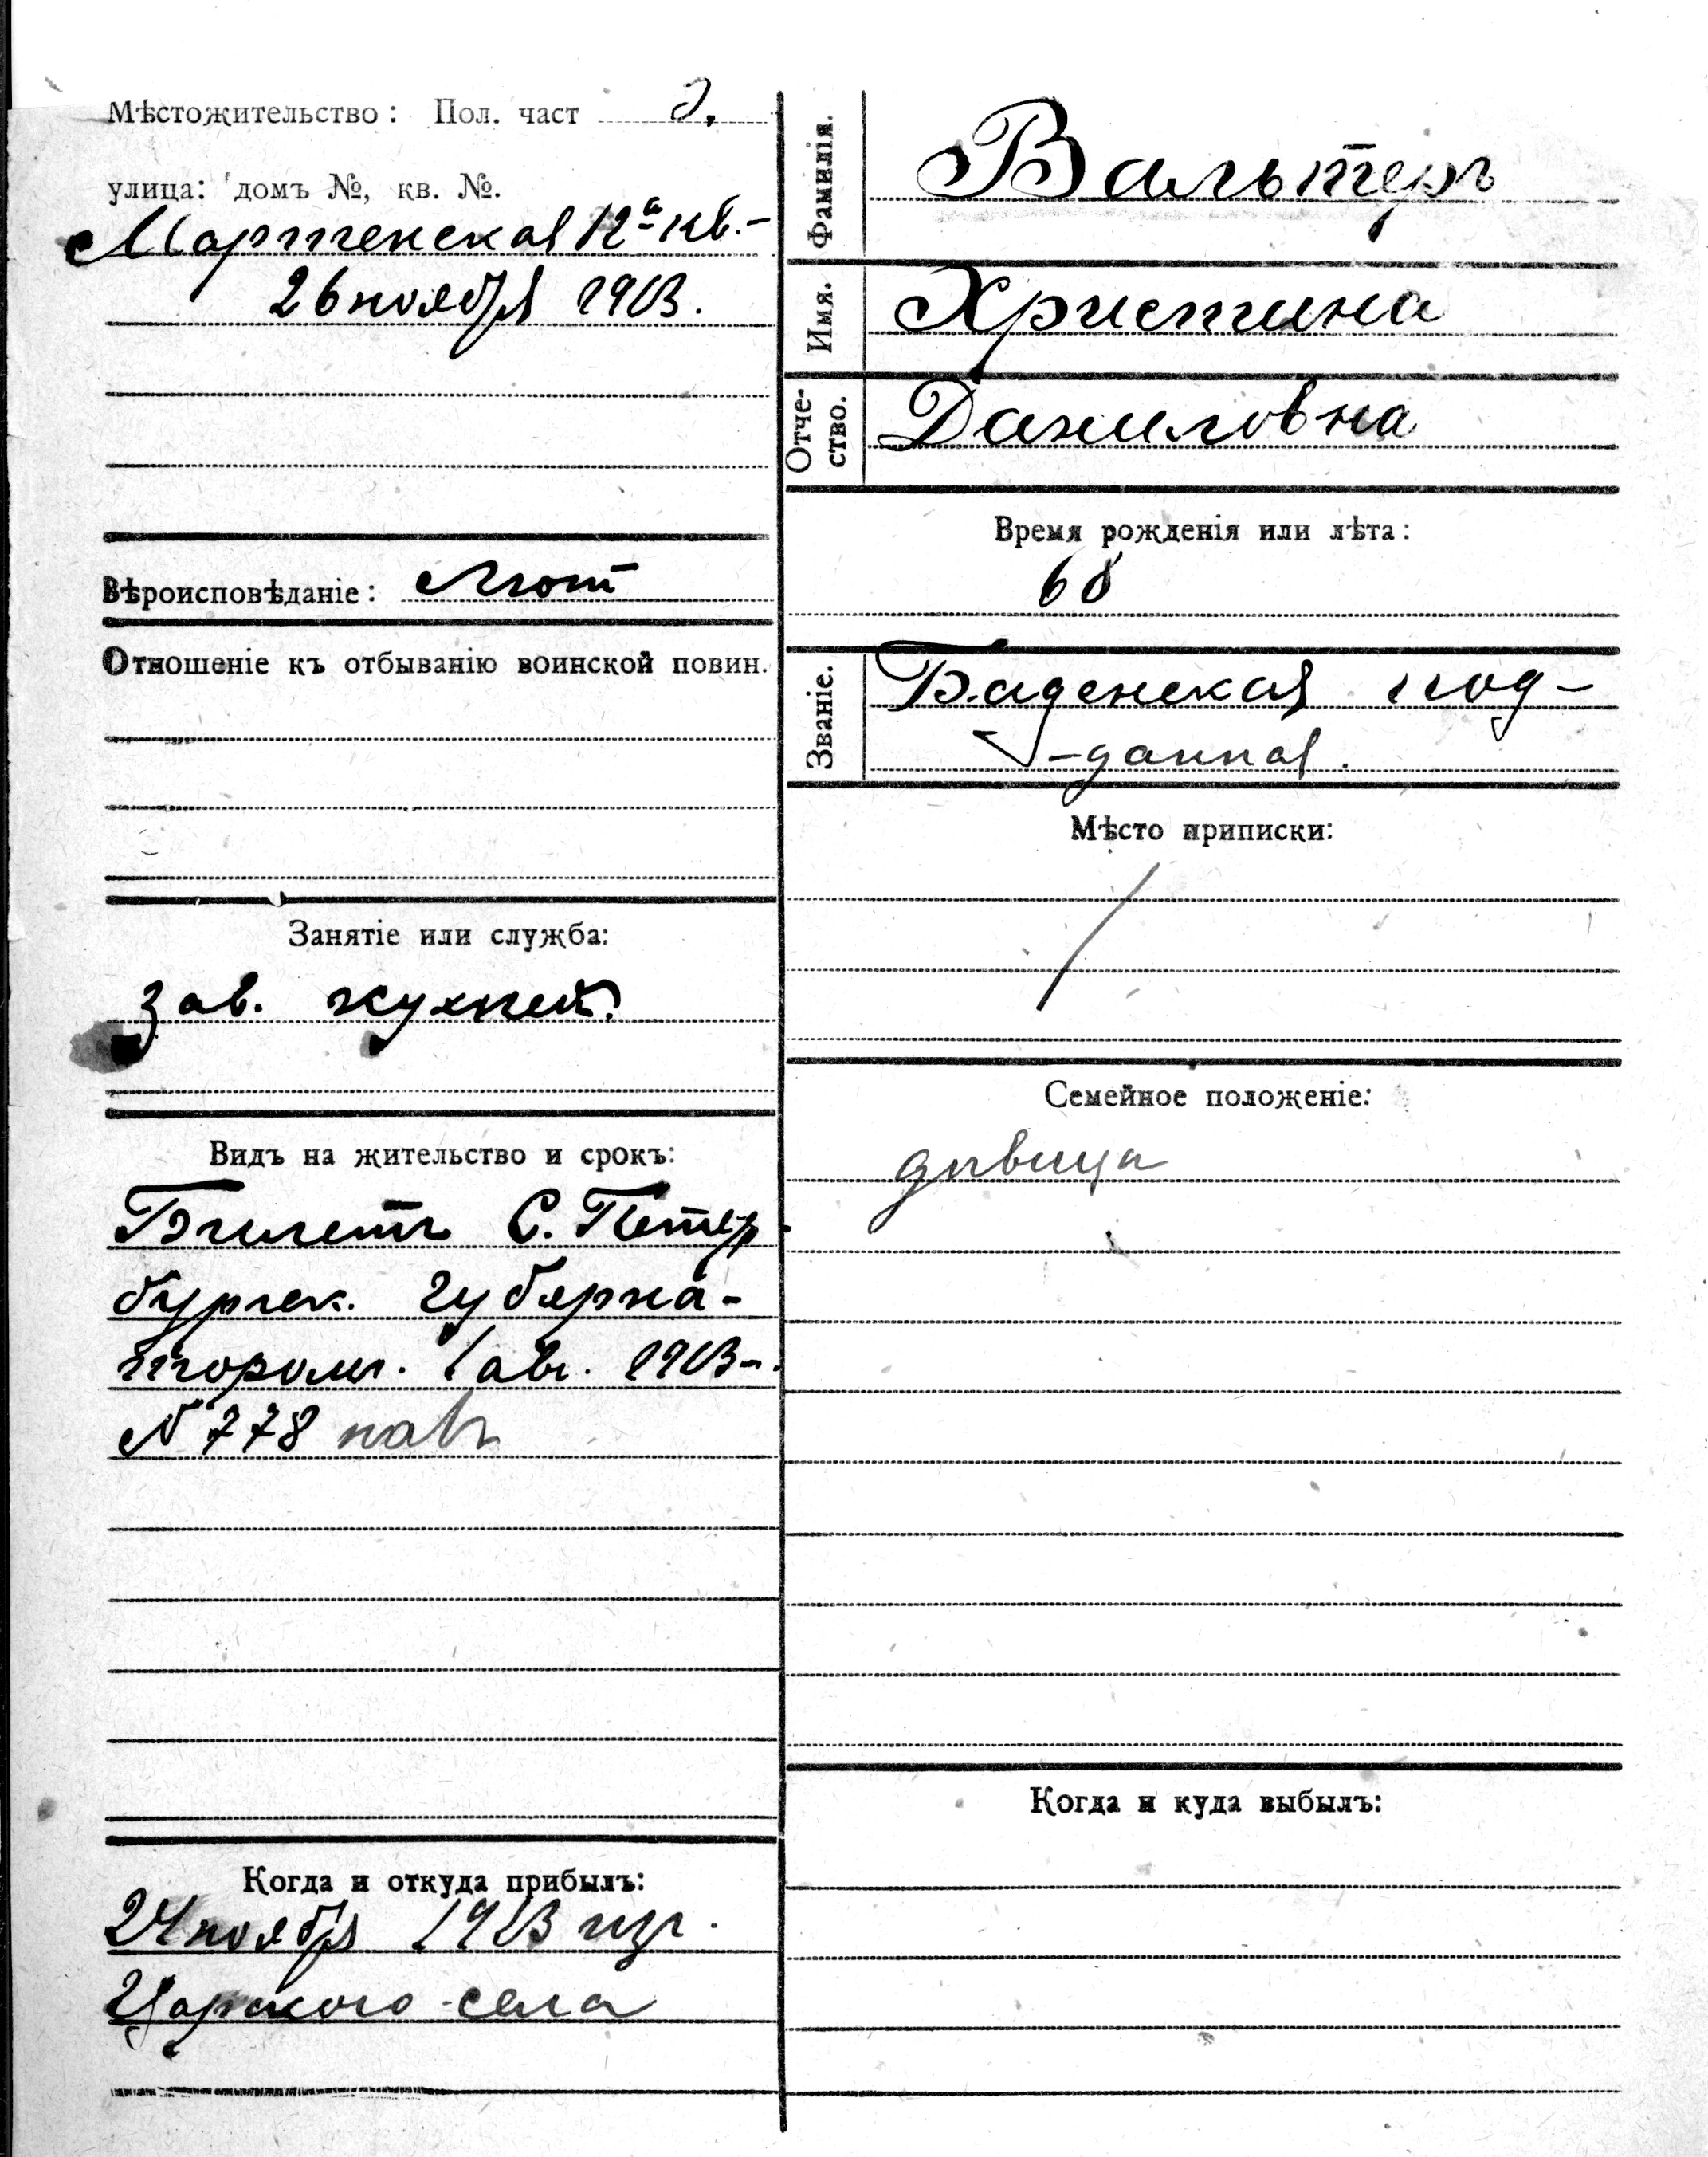 Мѣстожительство: Пол. част 2.
улица: домъ №, кв. №.
26 ноября 1913.
Вѣроисповѣданіе: Лют
Отношеніе къ отбыванію воинской повин.
Занятіе или служба:
Зав. кухней.
Видъ на жительство и срокъ:
Билетъ С. Петер
бургск. Губерна-
торомъ. 1 авг. 1913
N 778
Когда и откуда прибылъ:
24 ноября 1913 изъ
Царского-села
Фамилія. Вальтеръ
Имя. Христина
Отче-
ство. Даниловна
Время рожденія или лѣта:
68
Званіе. Баденская под-
-данная.
Мѣсто приписки:
Семейное положеніе:
дѣвица
Когда и куда выбылъ: